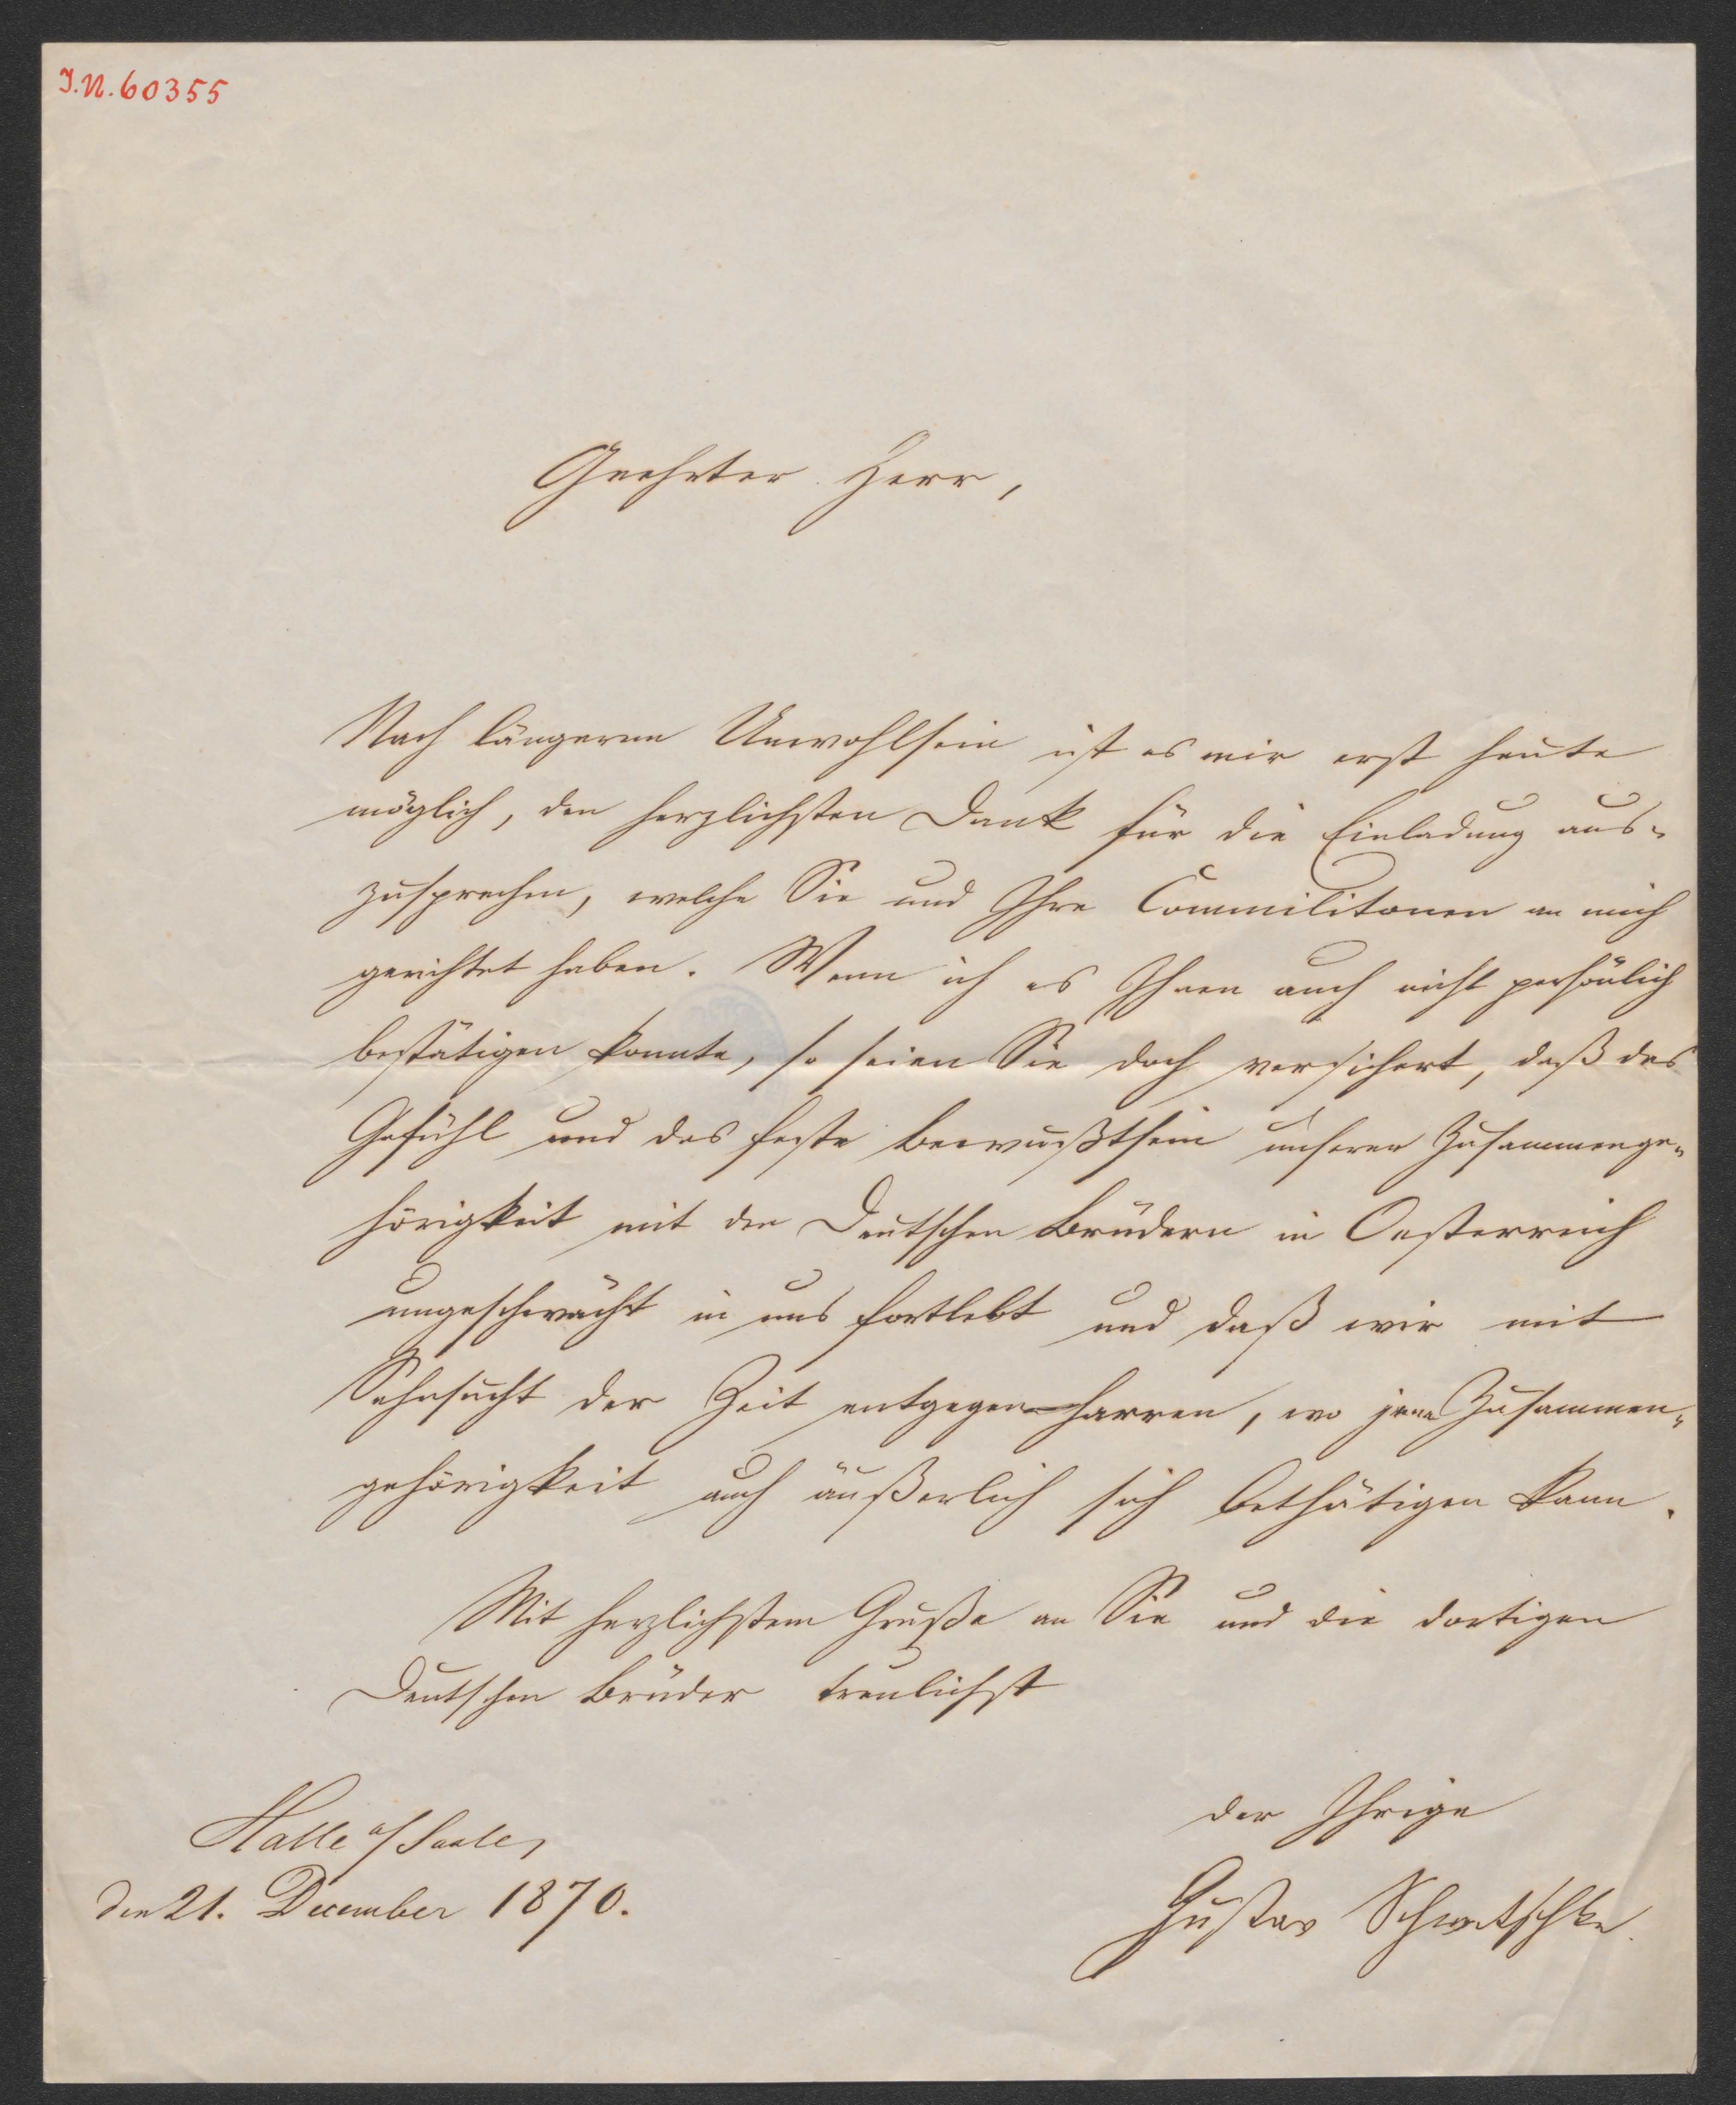 J.N. 60355
Geehrter Herr,
Nach längerem Unwohlsein ist es mir erst heute
möglich, den herzlichsten Dank für die Einladung aus-
zusprechen, welche Sie und Ihre Commilitonen an mich
gerichtet haben. Wenn ich es Ihnen auch nicht persönlich
bestätigen konnte, so seien Sie doch versichert, daß das
Gefühl und das feste Bewußtsein unserer Zusammenge-
hörigkeit mit den Deutschen Brüdern in Oesterreich
ungeschwächt in uns fortlebt und daß wir mit
Sehnsucht der Zeit entgegen harren, wo jene Zusammen-
gehörigkeit auch äußerlich sich bethätigen kann.
Mit herzlichstem Gruße an Sie und die dortigen
Deutschen Brüder treulichst
der Ihrige
Gustav Schwetschke.
Halle a/Saale,
den 21. December 1870.